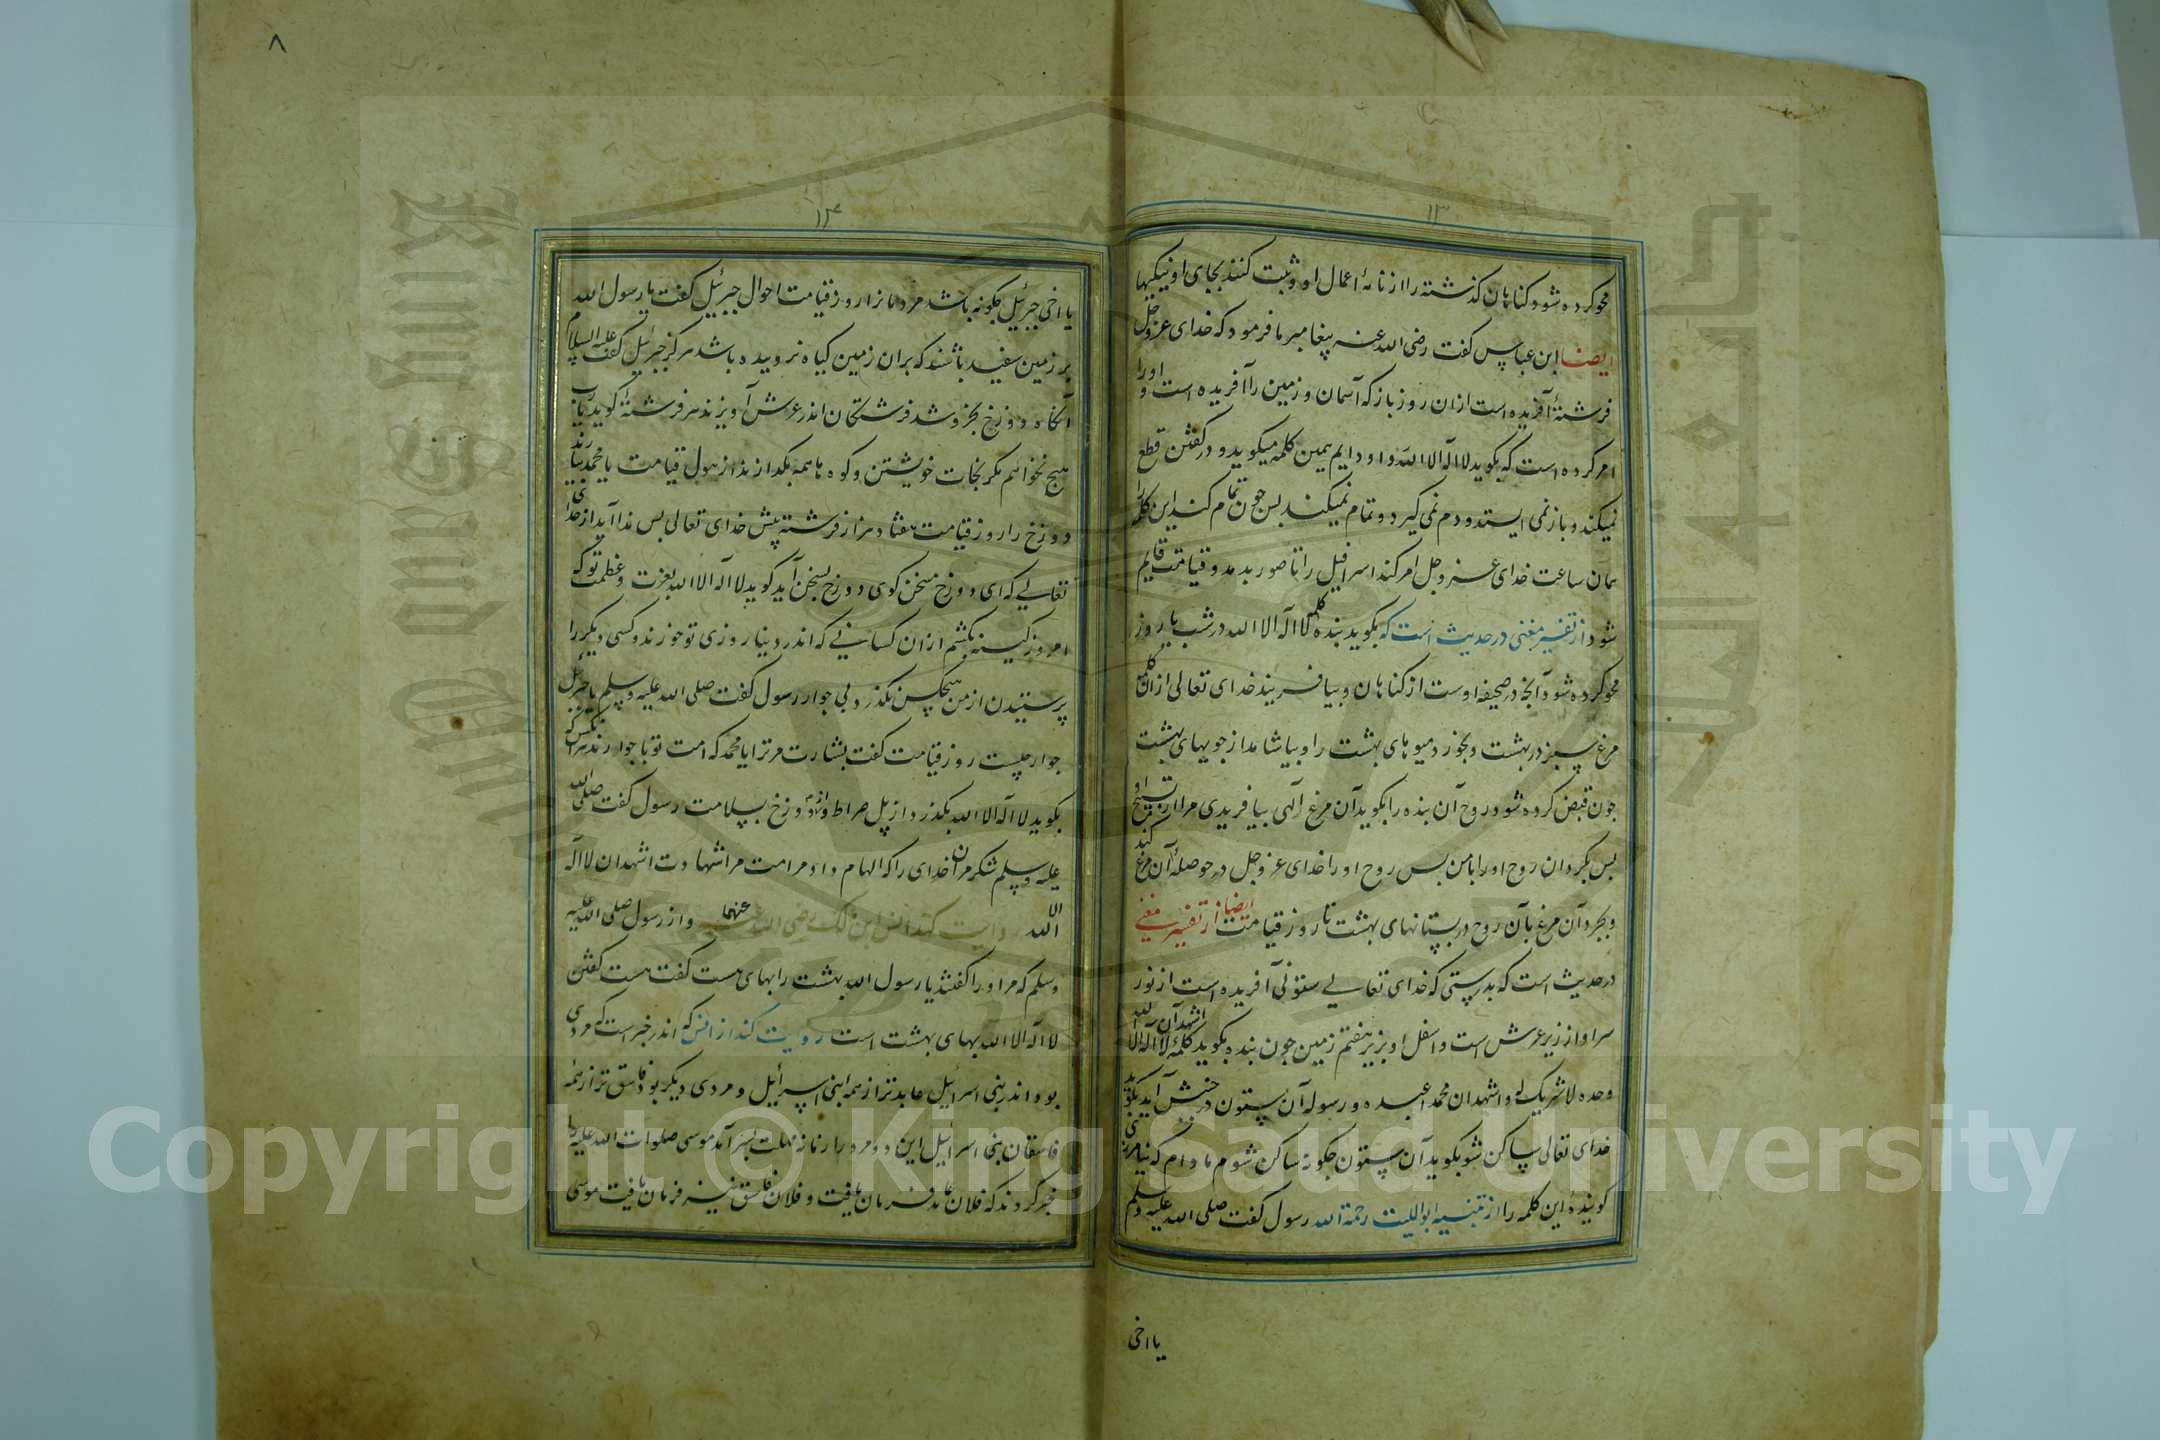 ٨
١٣
محو کرده شود کناهان کذشته را از نامهٔ اعمال او و ثبت کنند بجای او نیکیها
ایضا ابن عباس کفت رضی الله عنه پیغامبر ما فرمود که خدای عز و جل
فرشتهٔ آفریده است ازان روز باز که آسمان و زمین را آفریده است و او را
امر کرده است که بکوید لا اله الا الله و او دایم همین کلمه میکوید و در کفتن قطع
نمیکند و باز نمی ایستد و دم نمی کیرد و تمام نمیکند بس جون تمام کند این کلمه را
همان ساعت خدای عز و جل امر کند اسرافیل را تا صور بدمد و قیامت قایم
شود از تفسیر مغنی در حدیث است که بکوید بنده کلمه لا اله الا الله در شب یا روز
محو کرده شود آنجه در صحیفه اوست از کناهان و بیافریند خدای تعالی ازان کلمه
مرغ سبز در بهشت و بخورد میوهای بهشت را و بیاشامد از جویهای بهشت
جون قبض کرده شود روح آن بنده را بکوید آن مرغ الهی بیافریدی مرا از تسبیح او
بس بکردان روح او را با من بس روح او را خدای عز و جل در حوصلهٔ آن مرغ کند
و بجرد آن مرغ با آن روح در بستانهای بهشت تا روز قیامت ایضا از تفسیر مغنی
در حدیث است که بدرستی که خدای تعالی ستونی آفریده است از نور
سر او از زیر عرش است و اسفل او بزیر هفتم زمین جون بنده بکوید کلمهٔ اشهد ان لا اله الا الله
وحده لا شریک له و اشهد ان محمدا عبده و رسوله آن ستون در جنبش آید بکوید
خدای تعالی ساکن شو بکوید آن ستون جکونه ساکن شوم مادام که نیامرزی
کویندهٔ این کلمه را از تنبیه ابو اللیث رحمة الله رسول کفت صلی الله علیه وسلم
یا اخی
١٤
یا اخی جبرئیل جکونه باشد مردمانرا روز قیامت احوال جبرئیل کفت یا رسول الله
بر زمین سفید باشند که بران زمین کیاه نروییده باشد هرکز جبرئیل کفت علیه السلام
آنکاه دوزخ بخروشد فرشتکان اندر عرش آویزند هر فرشتهٔ کوید یا رب
هیج نخواهم مکر نجات خویشتن و کوه ها همه بکدازند از هول قیامت یا محمد بیارند
دوزخ را روز قیامت هفتاد هزار فرشته پیش خدای تعالی بس ندا آید از خدای
تعالی که ای دوزخ سخن کوی دوزخ بسخن آید کوید لا اله الا الله بعزت و عظمت تو که
امروز کینه بکشم ازان کسانی که اندر دنیا روزی تو خورند و کسی دیکر را
پرستیدن از من هیجکس نکذرد بی جواز رسول کفت صلی الله علیه وسلم یا جبرئیل
جواز جیست روز قیامت کفت بشارت مر ترا یا محمد که امت تو با جوازند هر آنکس که
بکوید لا اله الا الله بکذرد از پل صراط و از دوزخ بسلامت رسول کفت صلی الله
علیه وسلم شکر مر آن خدای را که الهام داد مر امت مرا شهادت اشهد ان لا اله
الا الله روایت کند انس ابن مالک رضی الله عنهما و از رسول صلی الله علیه
وسلم که مر او را کفتند یا رسول الله بهشت را بهای هست کفت هست کفتن
لا اله الا الله بهای بهشت است روایت کند از انس که اندر خبر است که مردی
بود اندر بنی اسرائیل عابدتر از همه بنی اسرائیل و مردی دیکر بود فاسق تر از همه
فاسقان بنی اسرائیل این دو مرد را زمانه مهلت بسر آمد موسی صلوات الله علیه را
خبر کردند که فلان عابد فرمان یافت و فلان فاسق نیز فرمان یافت موسی
Copyright © King Saud University
King Saud University